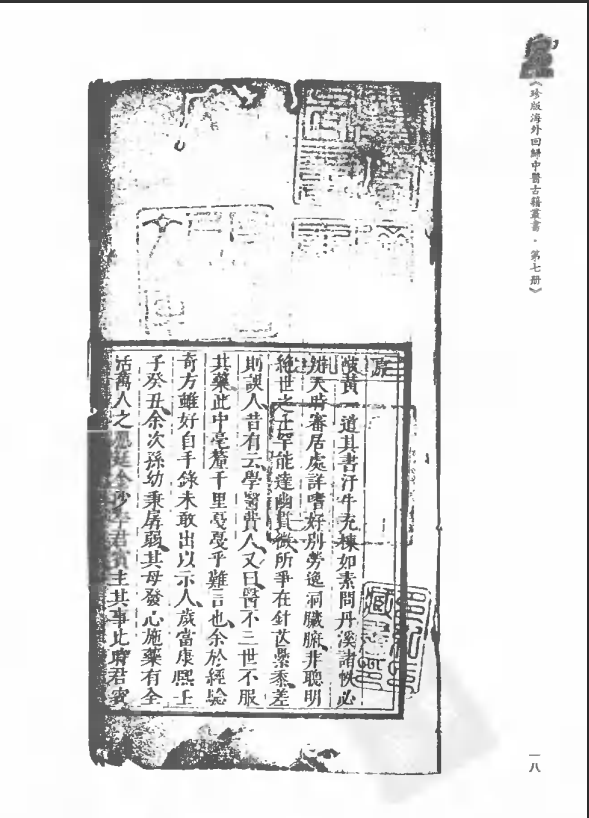 《珍版海外回歸中醫古籍叢書·第七册》
序
岐黃一道其書汗牛充棟如素問丹溪諸帙必
辨天時審居處詳嗜好別勞逸洞臟腑非聰明
絕世之士罕能達幽貫微所爭在針芒纍黍差
則誤人昔有云學醫費人又曰醫不三世不服
其藥此中毫釐千里戞戞乎難言也余於經驗
奇方雖好自手錄未敢出以示人歲當康熙壬
子癸丑余次孫幼秉孱弱其母發心施藥有全
活萬人之君賓主其事此時君賓
一八